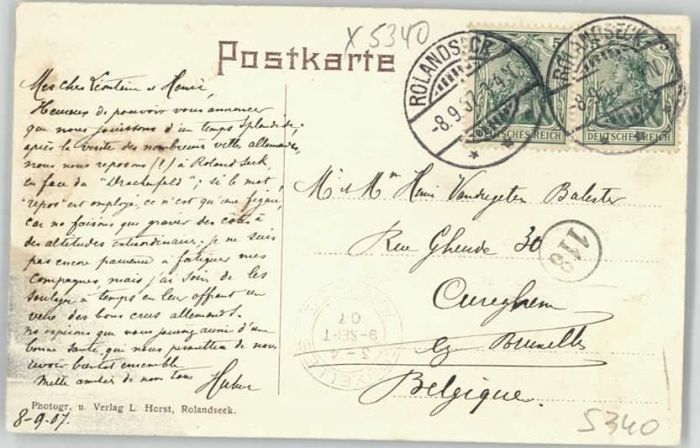 X 5340
Postkarte
ROLANDSECK
-8.9.07
DEUTSCHES REICH
ROLANDSECK
-8.9.
DEUTSCHES REICH
Mes chers et Henri,
Heureux de pouvoir vous annoncer
que nous jouissons d'un temps splendide;
après la visite des nombreuses villes allemandes,
nous nous reposons (!) à Rolandseck
en face du "Drachenfels"; si le mot
"repos" est employé, ce n'est qu'une figure,
car ne faisons que gravir des côtes à
des altitudes extraordinaires; je ne suis
pas encore parvenu à fatiguer mes
compagnes, mais j'ai soin de les
soulager à temps en leur offrant un
verre des bons crus allemands.
ns espérons que vous jouissez aussi d'une
bonne santé, qui nous permettra de nous
revoir bientôt ensemble.
Mille amitiés de nous tous
Hubert
Mr et Mme Henri Balester
Rue Gheude 30
Cureghem
Bruxelles
Belgique.
118
3-4
9-SEPT
07
Photogr. u. Verlag L. Horst, Rolandseck.
8-9-07.
5340